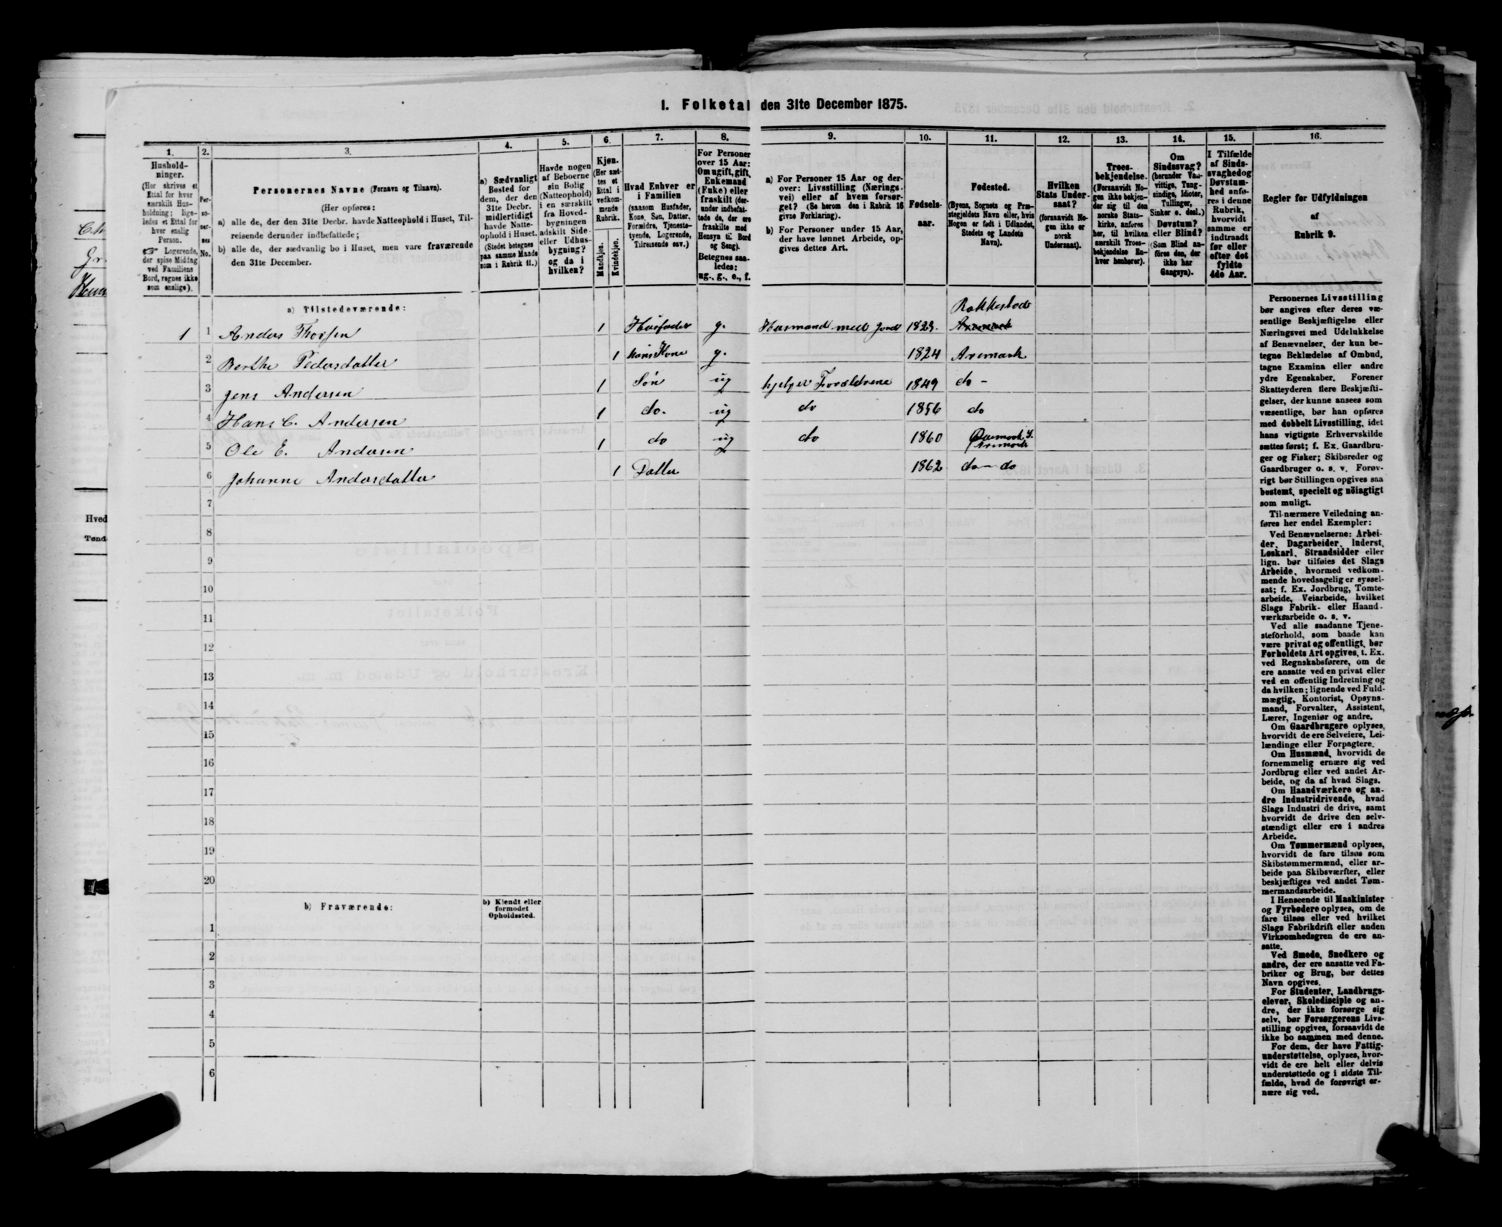 1. Folketal den 31te December 1875.
1.
Hushold-
ninger.
(Her skrives et
Ettal for hver
særskilt Hus-
holdning; lige-
ledes et Ettal for
hver enslig
Person.
Logerende,
der spise Middag
ved Familiens
Bord, regnes ikke
som enslige).
2.
Per-
so-
ner-
nes
No.
3.
Personernes Navne (Fornavn og Tilnavn).
(Her opføres:
a) alle de, der den 31te Decbr. havde Natteophold i Huset, Til-
reisende derunder indbefattede;
b) alle de, der sædvanlig bo i Huset, men vare fraværende
den 31te December.
4.
a) Sædvanligt
Bosted for
dem, der den
31te Decbr.
midlertidigt
havde Natte-
ophold i Huset.
(Stedet betegnes
paa samme Maade
som i Rubrik 11.)
5.
Havde nogen
af Beboerne
sin Bolig
(Natteophold)
i en særskilt
fra Hoved-
bygningen
adskilt Side-
eller Udhus-
bygning?
og da i
hvilken?
6.
Kjøn.
(Her sæt-
tes et
Ettal i
vedkom-
mende
Rubrik.
Mandkjøn.
Kvindekjøn.
7.
Hvad Enhver er
i Familien
(saasom Husfader,
Kone, Søn, Datter,
Forældre, Tjeneste-
tyende, Logerende,
Tilreisende osv.)
8.
For Personer
over 15 Aar:
Om ugift, gift,
Enkemand
(Enke) eller
fraskilt (der-
under indbefat-
tede de, der ere
fraskilte med
Hensyn til Bord
og Seng).
Betegnes saa-
ledes:
ug., g., e., f.
9.
a) For Personer 15 Aar og der-
over: Livsstilling (Nærings-
vei) eller af hvem forsør-
get? (Se herom den i Rubrik 16
givne Forklaring).
b) For Personer under 15 Aar,
der have lønnet Arbeide, op-
gives dettes Art.
10.
Fødsels-
aar.
11.
Fødested.
(Byens, Sognets og Præ-
stegjeldets Navn eller, hvis
Nogen er født i Udlandet,
Stedets og Landets
Navn).
12.
Hvilken
Stats Under-
saat?
(forsaavidt No-
gen ikke er
norsk
Undersaat).
13.
Troes-
bekjendelse.
(Forsaavidt No-
gen ikke bekjen-
der sig til den
norske Stats-
kirke, anføres
her, til hvilken
særskilt Troes-
bekjendelse En-
hver henhører).
14.
Om
Sindssvag?
(herunder Van-
vittige, Tung-
sindige, Idioter,
Tullinger,
Sinker o. desl.)
Døvstum?
eller Blind?
(Som Blind an-
føres den, der
ikke har
Gangsyn).
15.
I Tilfælde
af Sinds-
svaghed og
Døvstum-
hed anfø-
res i denne
Rubrik,
hvorvidt
samme er
indtraadt
før eller
efter det
fyldte
4de Aar.
16.
Regler for Udfyldningen
af
Rubrik 9.
a) Tilstedeværende:
Rakkestad
1 1 Anders Thorsen 1 Husfader g. Husmand med Jord 1823 Aremark
2 Berthe Pedersdatter 1 Hans Kone g. 1824 Aremark
3 Jens Andersen 1 Søn ug hjelper Forældrene 1849 do -
4 Hans C. Andersen 1 do. ug do 1856 do
5 Ole E. Andersen 1 do ug do 1860 Aremark
6 Johanne Andersdatter 1 Datter 1862 do - do
7
8
9
10
11
12
13
14
15
16
17
18
19
20
b) Fraværende:
b) Kjendt eller
formodet
Opholdssted.
1
2
3
4
5
6
Personernes Livsstilling
bør angives efter deres væ-
sentlige Beskjæftigelse eller
Næringsvei med Udelukkelse
af Benævnelser, der kun be-
tegne Beklædelse af Ombud,
tagne Examina eller andre
ydre Egenskaber. Forener
Skatteyderen flere Beskjæfti-
gelser, der kunne ansees som
væsentlige, bør han opføres
med dobbelt Livsstilling, idet
hans vigtigste Erhvervskilde
sættes først; f. Ex. Gaardbru-
ger og Fisker; Skibsreder og
Gaardbruger o. s. v. Forøv-
rigt bør Stillingen opgives saa
bestemt, specielt og nöiagtigt
som muligt.
Til nærmere Veiledning an-
føres her endel Exempler:
Ved Benævnelserne: Arbei-
der, Dagarbeider, Inderst,
Løskarl, Strandsidder eller
lign. bør tilføies det Slags
Arbeide, hvormed vedkom-
mende hovedsagelig er syssel-
sat; f. Ex. Jordbrug, Tomte-
arbeide, Veiarbeide, hvilket
Slags Fabrik- eller Haand-
værksarbeide o. s. v.
Ved alle saadanne Tjene-
steforhold, som baade kan
være privat og offentligt, bør
Forholdets Art opgives, t. Ex.
ved Regnskabsførere, om de
ere ansatte ved en privat eller
ved en offentlig Indretning og
da hvilken; lignende ved Fuld-
mægtig, Kontorist, Opsyns-
mand, Forvalter, Assistent,
Lærer, Ingeniør og andre.
Om Gaardbrugere oplyses,
hvorvidt de ere Selveiere, Lei-
lændinge eller Forpagtere.
Om Husmænd, hvorvidt de
fornemmelig ernære sig ved
Jordbrug eller ved andet Ar-
beide, og da af hvad Slags.
Om Haandværkere og an-
dre Industridrivende, hvad
Slags Industri de drive, samt
hvorvidt de drive den selv-
stændigt eller ere i andres
Arbeide.
Om Tømmermænd oplyses,
hvorvidt de fare tilsøs som
Skibstømmermænd, eller ar-
beide paa Skibsværfter, eller
beskjæftiges ved andet Tøm-
mermandsarbeide.
I Henseende til Maskinister
og Fyrbødere oplyses, om de
fare tilsøs eller ved hvilket
Slags Fabrikdrift eller anden
Virksomhedsgren de ere an-
satte.
Ved Smede, Snedkere og
andre, der ere ansatte ved Fa-
briker og Brug, bør dettes
Navn opgives.
For Studenter, Landbrugs-
elever, Skoledisciple og an-
dre, der ikke forsørge sig
selv, bør Forsørgerens Livs-
stilling opgives, forsaavidt de
ikke bo sammen med denne.
For dem, der have Fattig-
understøttelse, oplyses, hvor-
vidt de ere helt eller delvis
understøttede og i sidste Til-
fælde, hvad de forøvrigt er-
nære sig ved.